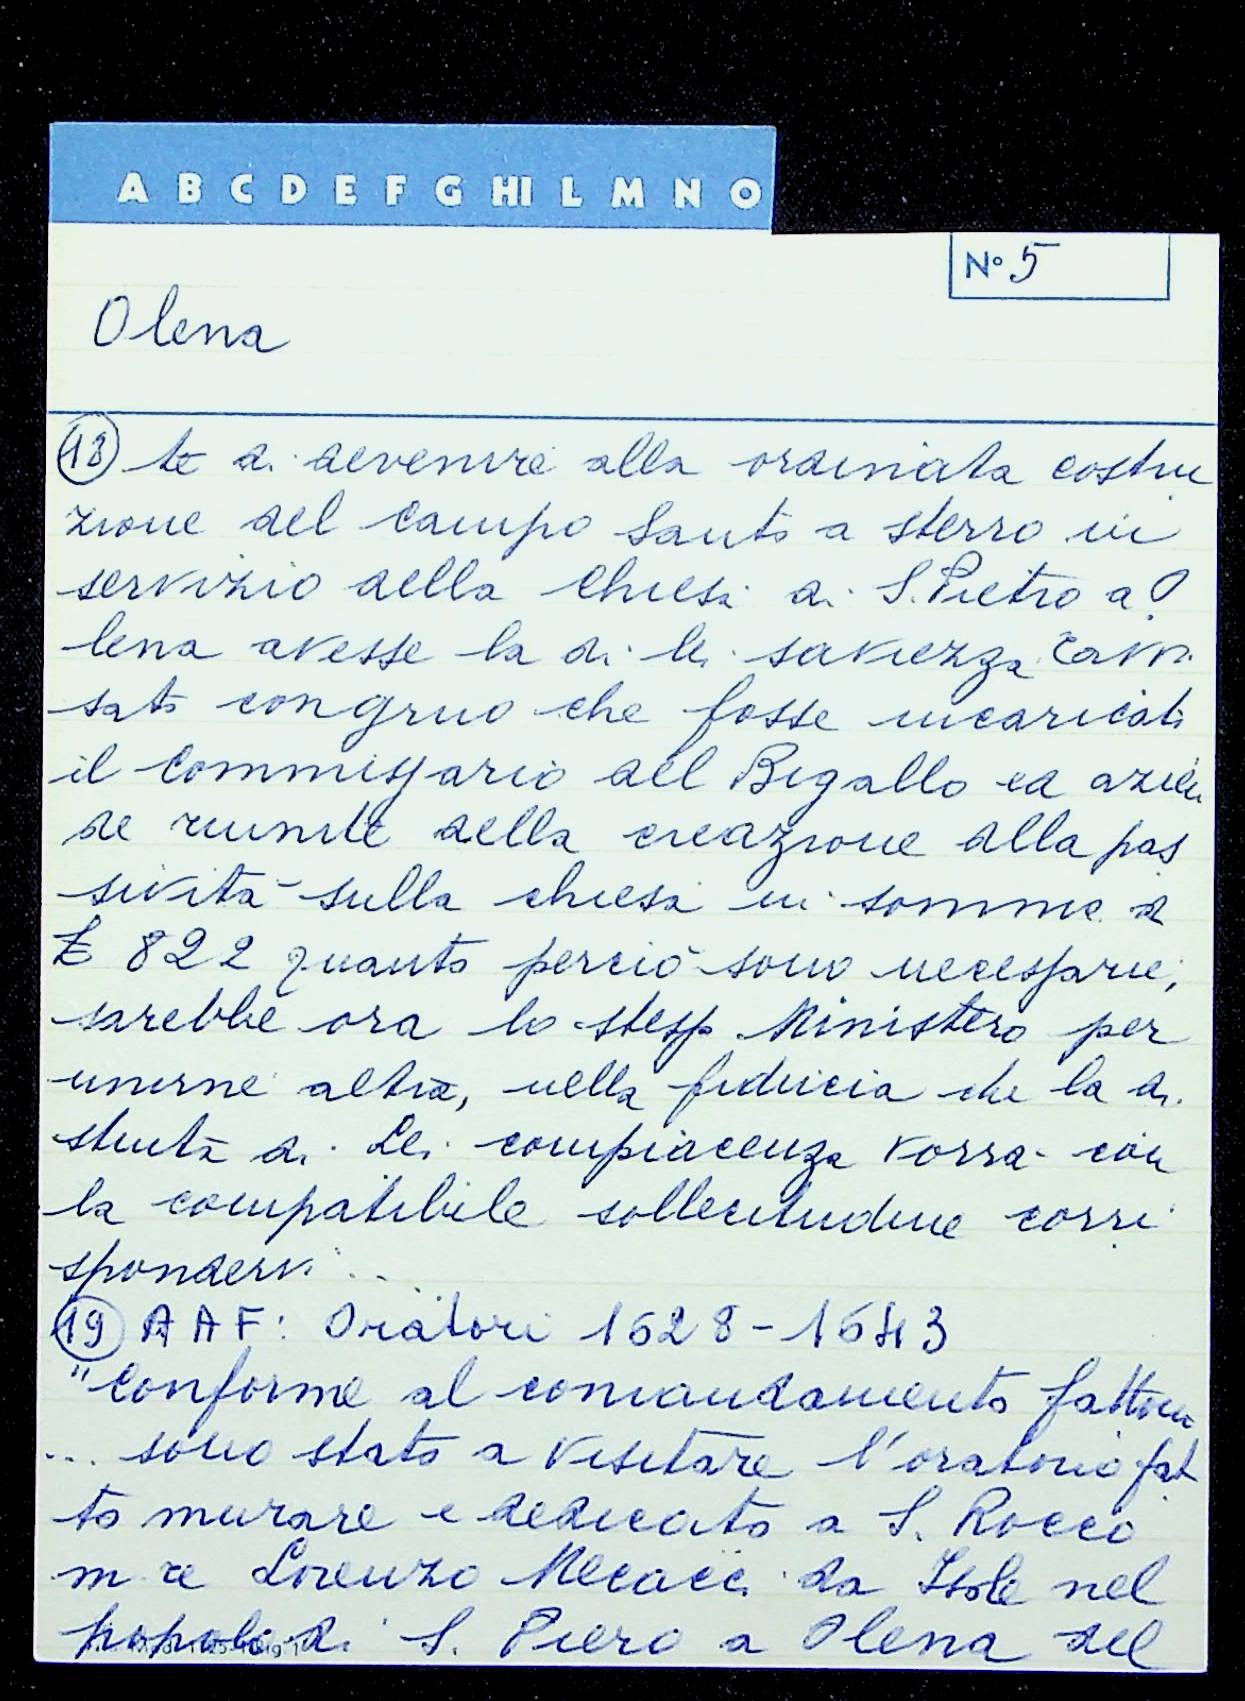 A B C D E F G HI L M N O
N° 5
Olena
18 te di devenire alla ordinata costru
zione del campo Santo a sterro in
servizio della Chiesa di S. Pietro a O
lena avesse la di lei saviezza
sato congruo che fosse incaricato
il Commissario del Bigallo ed azien
de riunite della creazione alla pas
sività sulla chiesa in somme di
£ 822 quanto perciò sono necessarie,
sarebbe ora lo stesso Ministero per
unirne altra, nella fiducia che la di
stinta di Lei compiacenza vorrà con
la compatibile sollecitudine corri
spondervi...
19 A A F: Oratori 1628-1643
"Conforme al comandamento fattomi
... sono stato a visitare l'oratorio fat
to murare e dedicato a S. Rocco
m re Lorenzo Mecacci da Isole nel
popolo di S. Piero a Olena del